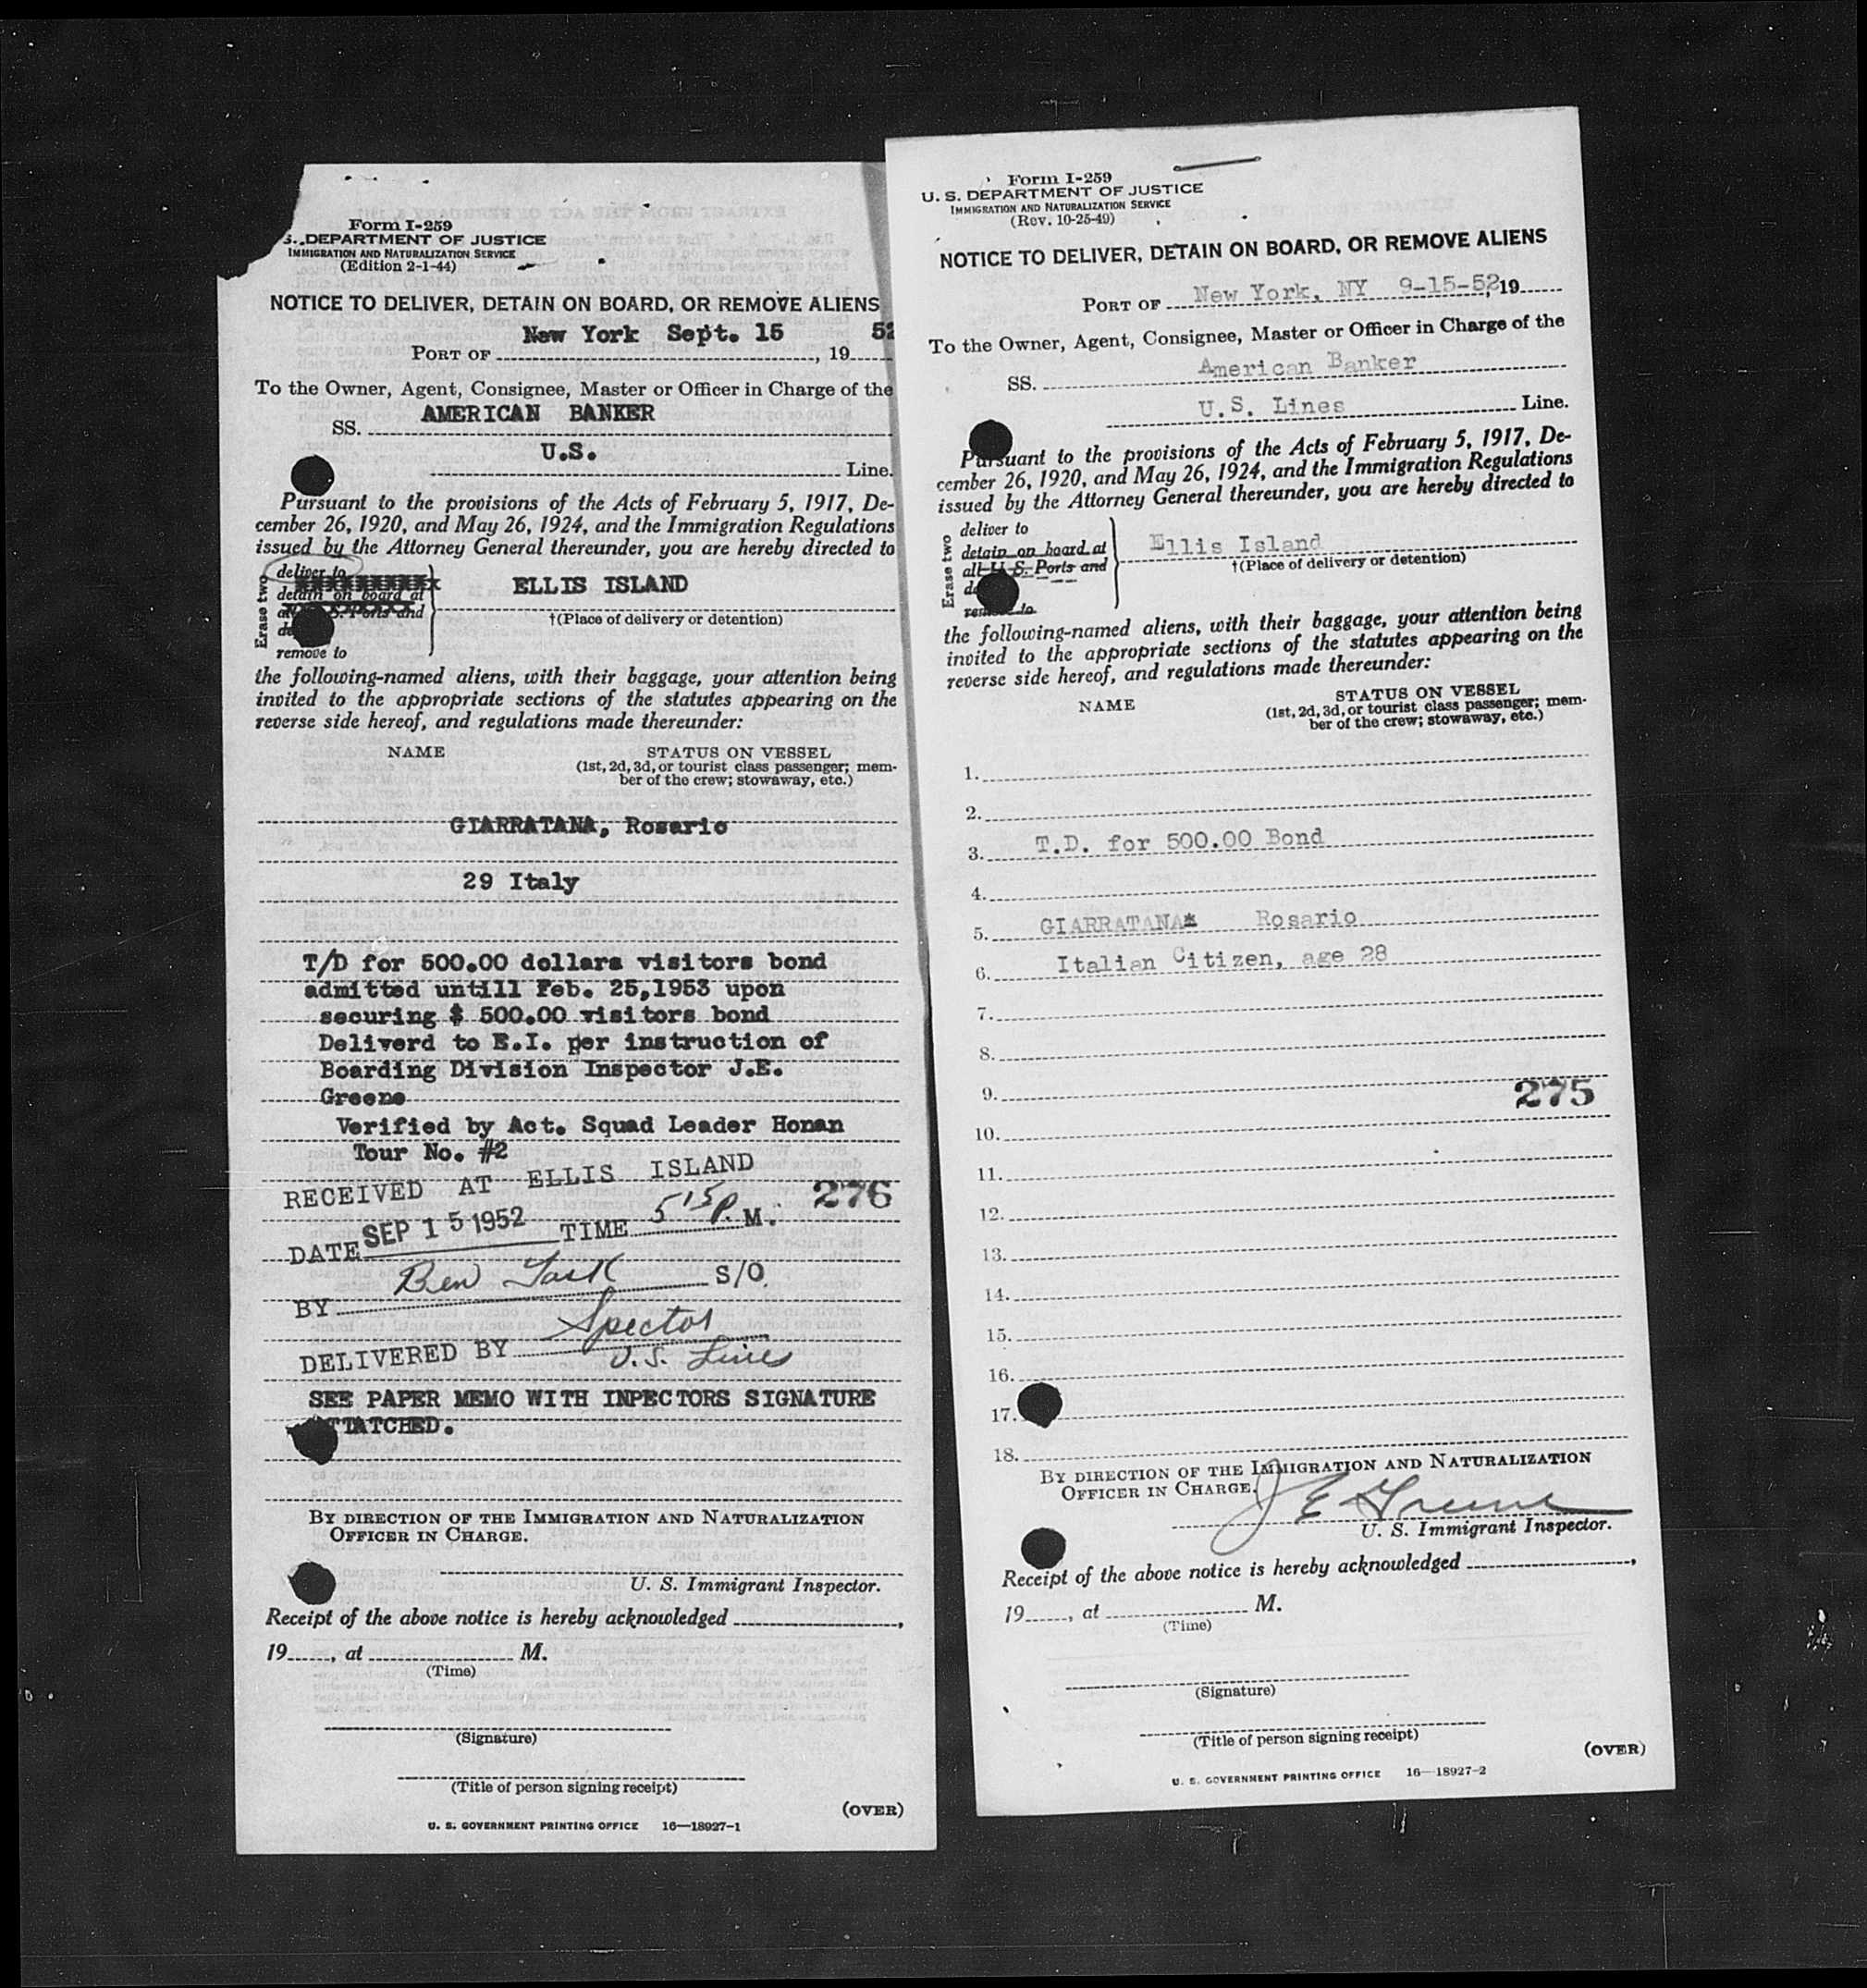 Form I-259
S. DEPARTMENT OF JUSTICE
IMMIGRATION AND NATURALIZATION SERVICE
(Edition 2-1-44)
NOTICE TO DELIVER, DETAIN ON BOARD, OR REMOVE ALIENS
New York Sept. 15 52
PORT OF , 19
To the Owner, Agent, Consignee, Master or Officer in Charge of the
AMERICAN BANKER
SS.
U.S.
Line.
Pursuant to the provisions of the Acts of February 5, 1917, De-
cember 26, 1920, and May 26, 1924, and the Immigration Regulations
issued by the Attorney General thereunder, you are hereby directed to
Erase two
deliver to
detain on board at
S. Ports and
remove to
ELLIS ISLAND
†(Place of delivery or detention)
the following-named aliens, with their baggage, your attention being
invited to the appropriate sections of the statutes appearing on the
reverse side hereof, and regulations made thereunder:
NAME STATUS ON VESSEL
(1st, 2d, 3d, or tourist class passenger; mem-
ber of the crew; stowaway, etc.)
GIARRATANA, Rosario
29 Italy
T/D for 500.00 dollars visitors bond
admitted untill Feb. 25,1953 upon
securing $ 500.00 visitors bond
Deliverd to E.I. per instruction of
Boarding Division Inspector J.E.
Greene
Verified by Act. Squad Leader Honan
Tour No. #2
RECEIVED AT ELLIS ISLAND
276
DATE SEP 15 1952 TIME 5 15 P. M.
BY Ben S/O
DELIVERED BY Spector
U.S. Lines
SEE PAPER MEMO WITH INPECTORS SIGNATURE
TTATCHED.
BY DIRECTION OF THE IMMIGRATION AND NATURALIZATION
OFFICER IN CHARGE.
U. S. Immigrant Inspector.
Receipt of the above notice is hereby acknowledged ,
19 , at M.
(Time)
(Signature)
(Title of person signing receipt)
(OVER)
U. S. GOVERNMENT PRINTING OFFICE 16—18927-1
Form I-259
U. S. DEPARTMENT OF JUSTICE
IMMIGRATION AND NATURALIZATION SERVICE
(Rev. 10-25-49)
NOTICE TO DELIVER, DETAIN ON BOARD, OR REMOVE ALIENS
PORT OF New York, NY 9-15-52, 19
To the Owner, Agent, Consignee, Master or Officer in Charge of the
SS. American Banker
U.S. Lines Line.
Pursuant to the provisions of the Acts of February 5, 1917, De-
cember 26, 1920, and May 26, 1924, and the Immigration Regulations
issued by the Attorney General thereunder, you are hereby directed to
Erase two
deliver to
detain on board at
all U. S. Ports and
remove to
Ellis Island
†(Place of delivery or detention)
the following-named aliens, with their baggage, your attention being
invited to the appropriate sections of the statutes appearing on the
reverse side hereof, and regulations made thereunder:
NAME STATUS ON VESSEL
(1st, 2d, 3d, or tourist class passenger; mem-
ber of the crew; stowaway, etc.)
1.
2.
3. T.D. for 500.00 Bond
4.
5. GIARRATANA Rosario
6. Italian Citizen, age 28
7.
8.
9. 275
10.
11.
12.
13.
14.
15.
16.
17.
18.
BY DIRECTION OF THE IMMIGRATION AND NATURALIZATION
OFFICER IN CHARGE.
J E Greene
U. S. Immigrant Inspector.
Receipt of the above notice is hereby acknowledged ,
19 , at M.
(Time)
(Signature)
(Title of person signing receipt)
(OVER)
U. S. GOVERNMENT PRINTING OFFICE 16—18927-2